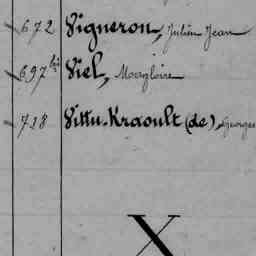 672 Vigneron, Julien Jean
697 bis Viel, Magloire
728 Vittu-Kraoult (de), Georges
X